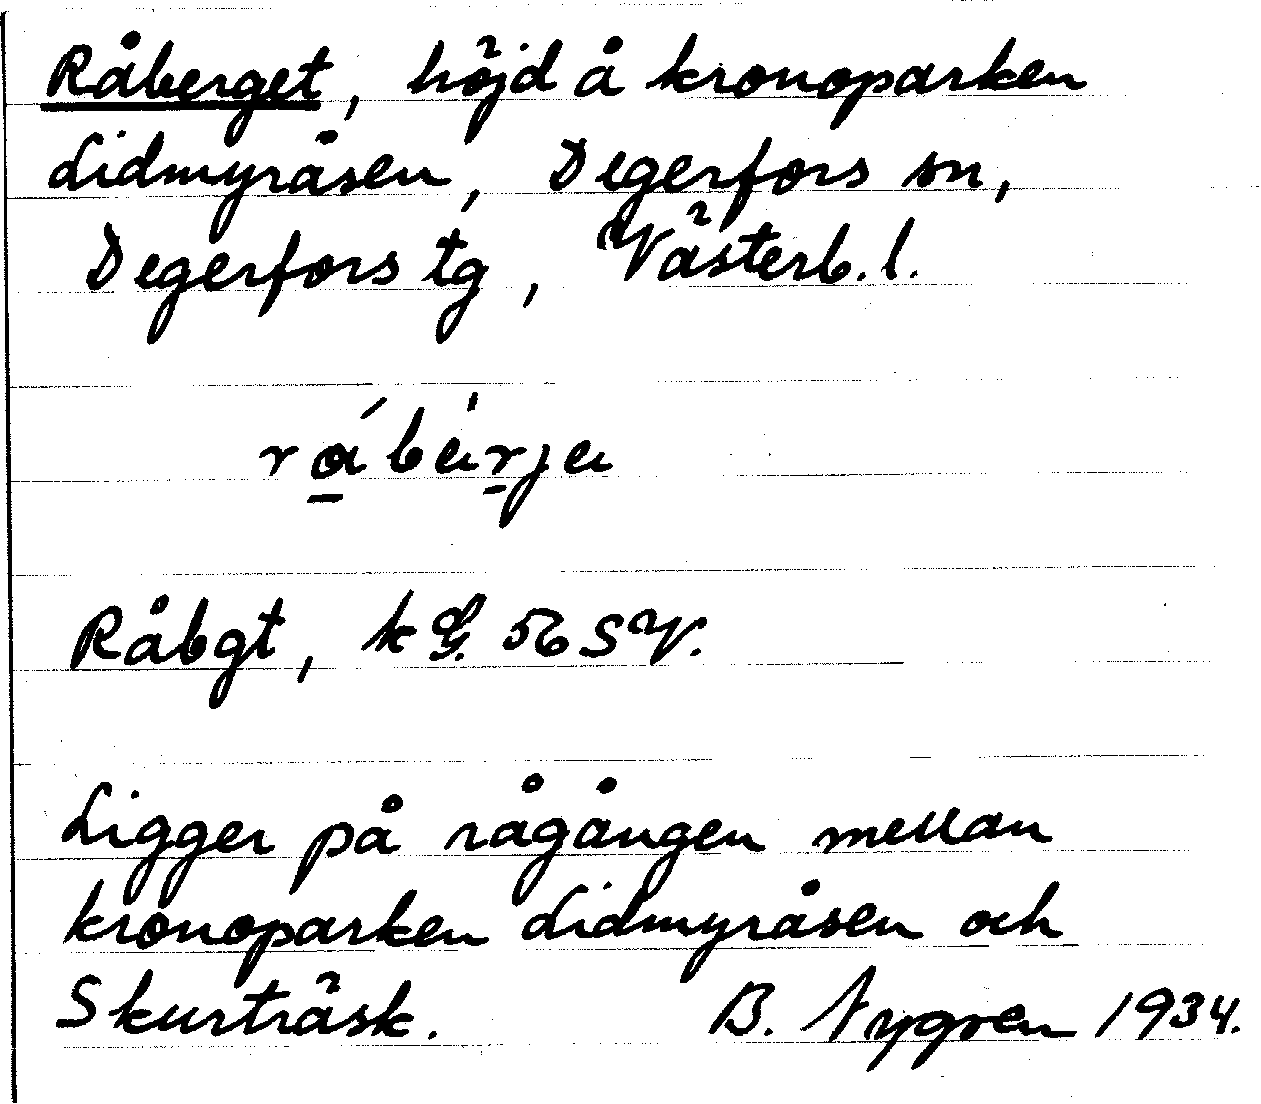 Råberget, höjd å kronoparken
Lidmyråsen, Degerfors sn,
Degerfors tg, Västerb. l.
Råbgt, kG. 56 SV.
Ligger på rågången mellan
kronoparken Lidmyråsen och
Skurträsk. B. Nygren 1934.